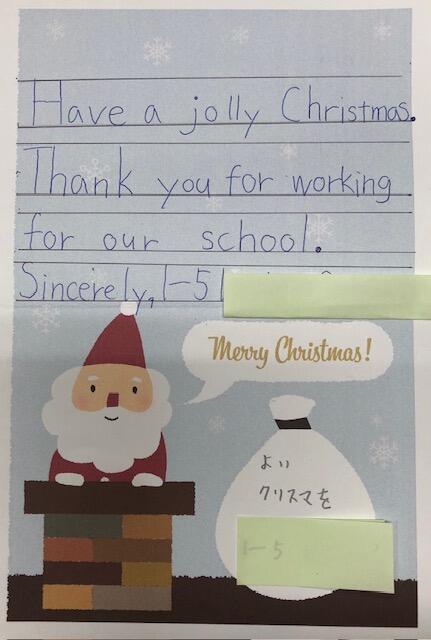 Have a jolly Christmas.
Thank you for working
for our school.
Sincerely, 1-5
Merry Christmas!
よい
クリスマスを
1-5